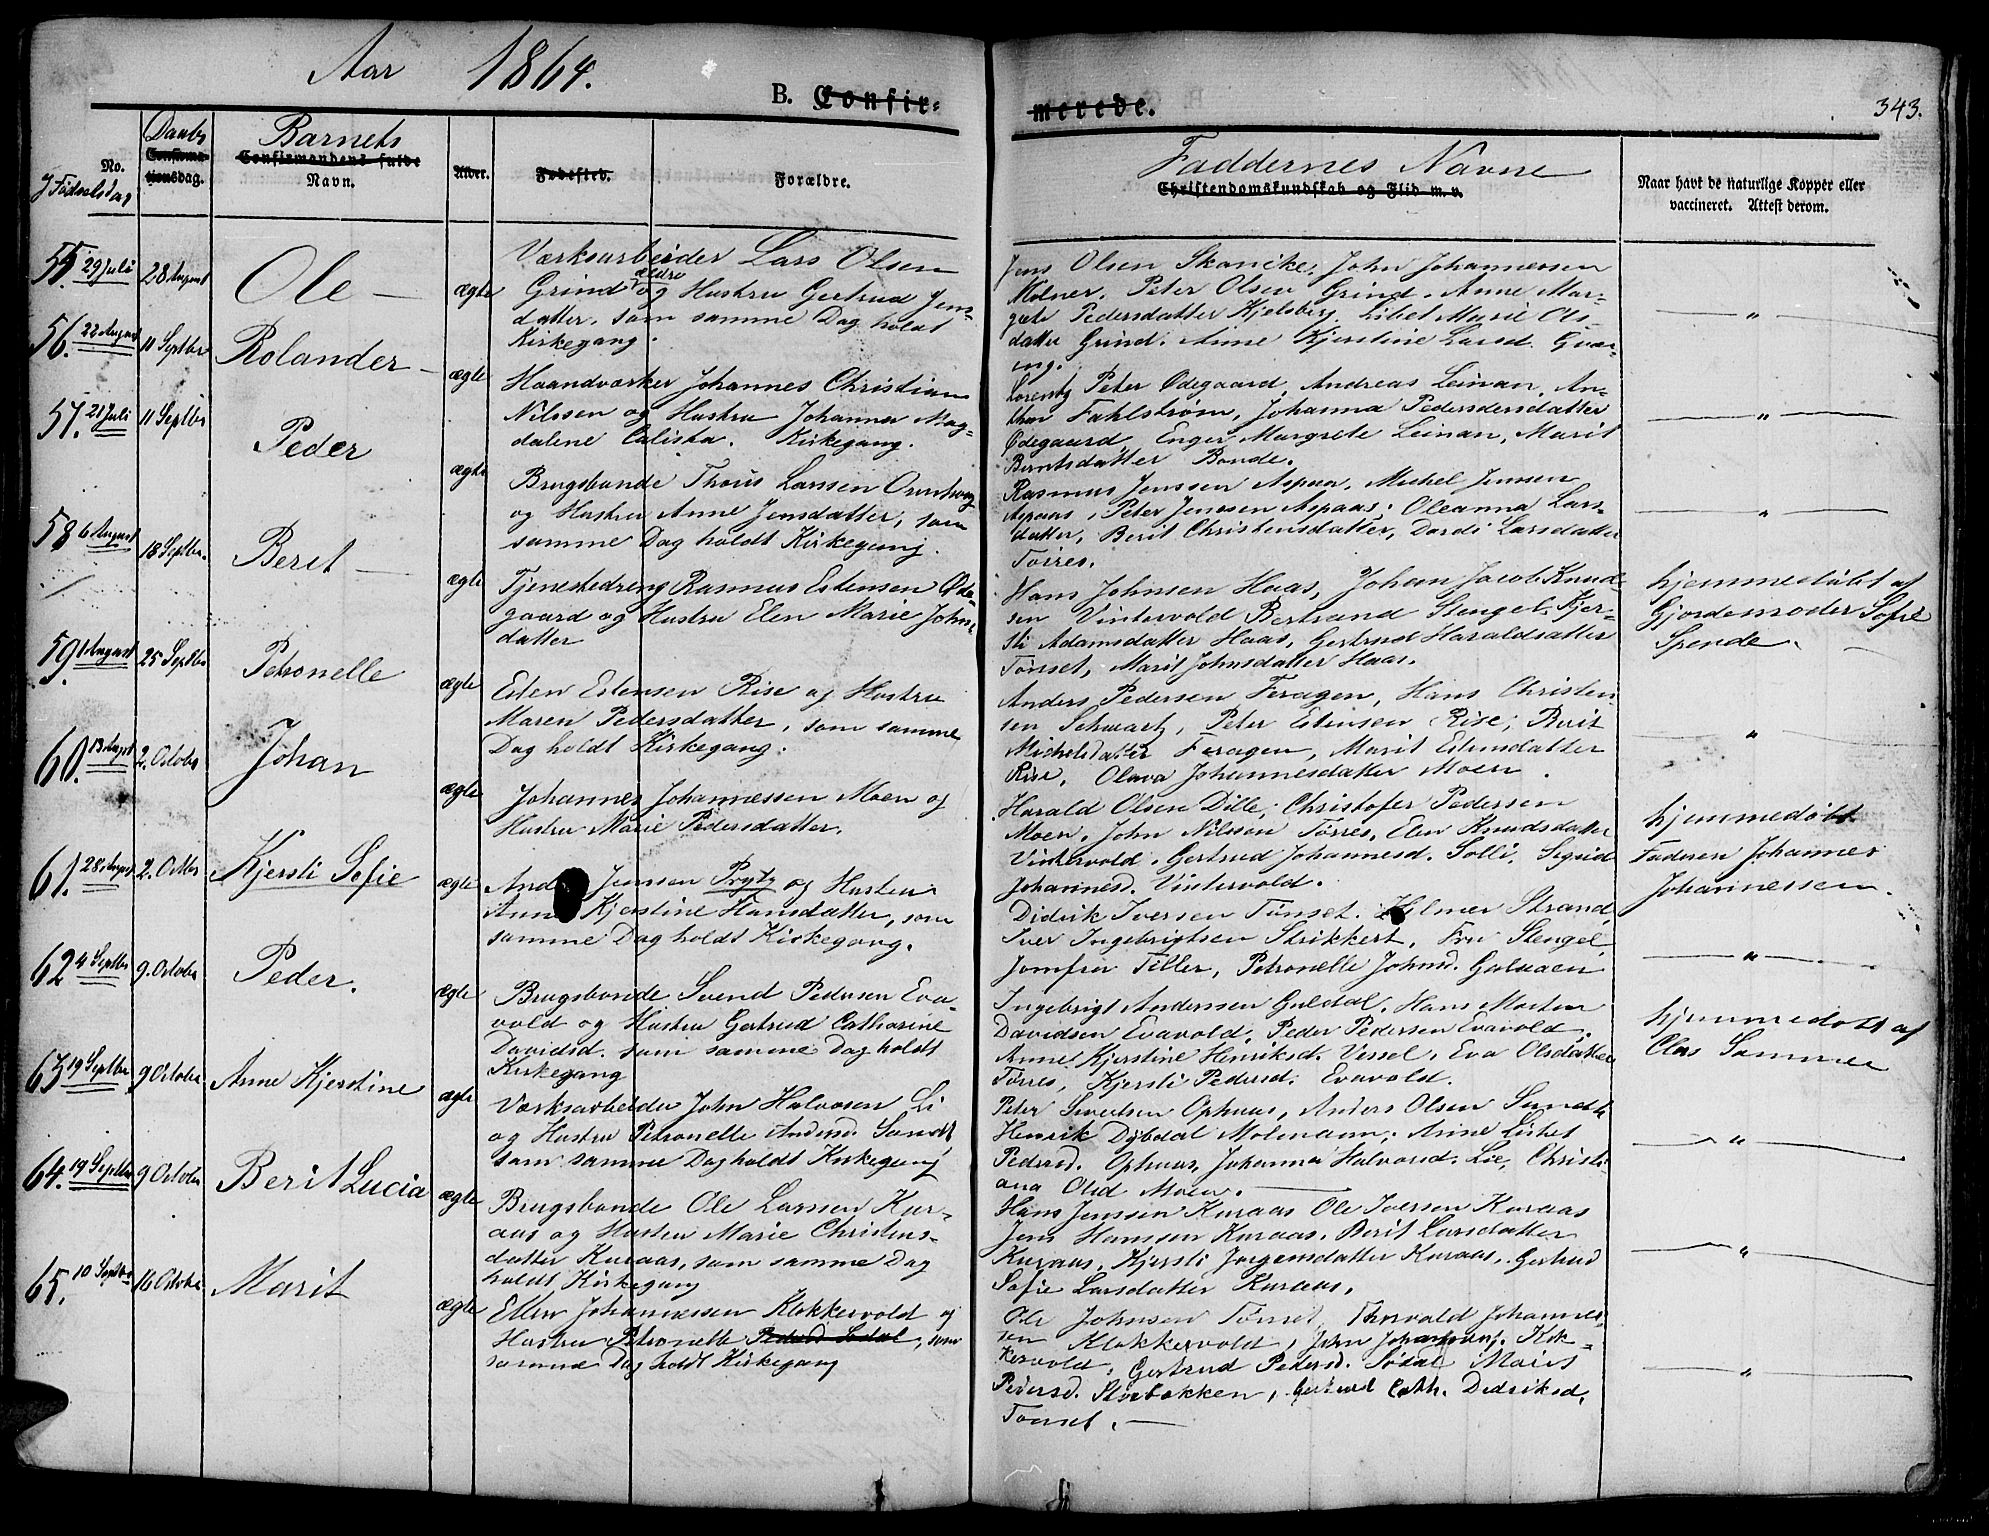 Aar 1864.
B. Confir-
merede.
343.
No.
Födselsdag
Daabs
Confirma-
tionsdag.
Barnets
Confirmandens fulde
Navn.
Alder.
Fødested.
Forældre.
Faddernes Navne
Christendomskundskab og Flid m. v.
Naar havt de naturlige Kopper eller
vaccineret. Attest derom.
55. 29 Juli
28 August
Ole
ægte
Værksarbeider Lars Olsen
Grind og Hustru Gertrud Jens-
datter, som samme Dag holdt
Kirkegang.
Jens Olsen Skancke, John Johannessen
Molner. Peter Olsen Grind. Anne Mar-
grete Pedersdatter Kjelsberg, Lisbet Marie Ols-
datter Grind. Anne Kjerstine Larsd.
"
56. 22 August
11 Septbr
Rolander
ægte
Haandværker Johannes Christian
Nilssen og Hustru Johanna Mag-
dalene Caliska. Kirkegang.
Lorents Peter Ødegaard, Andreas Leinan, An-
thon Fahlstrøm, Johanna Pedersdersdatter
Ødegaard, Enger Margrete Leinan, Marit
Berntsdatter Bonde.
"
57. 21 Juli
11 Septbr
Peder
ægte
Brugsbonde Thøus Larsen
og Hustru Anne Jensdatter, som
samme Dag holdt Kirkegang.
Rasmus Jenssen Aspaas, Michel Jensen
Aspaas, Peter Jenssen Aspaas; Oleanna Lars-
datter, Berit Christensdatter, Dordi Larsdatter
Torres.
"
58 6 August
18 Septbr.
Beret
ægte
Tjenestedreng Rasmus Estensen Øde-
gaard og Hustru Elen Marie Johns-
datter
Hans Johnsen Haas, Johan Jacob Knud-
sen Vintervold Bertrand Stengel. Kjer-
sti Adamsdatter Haas, Gertrud Haraldsdatter
Tønset, Marit Johnsdatter Haas.
hjemmedøbt af
Gjordemoder Sofie
Spende.
59. 1 August
25 Septbr
Petronelle
ægte
Esten Estensen Rise og Hustru
Maren Pedersdatter, som samme
Dag holdt Kirkegang.
Anders Pedersen Feragen, Hans Christen-
sen Schwart, Peter Estensen Rise, Berit
Michelsdatter Feragen, Marit Estensdatter
Rise, Olava Johannesdatter Moen.
"
60. 13 August
2. October
Johan
ægte
Johannes Johannessen Moen og
Hustru Marie Pedersdatter.
Harald Olsen Dille, Christofer Pedersen
Moen, John Nilsson Torres, Elen Knudsdatter
Vintervold. Gertrud Johannesd. Solli, Sigrid
Johannesd. Vintervold.
hjemmedøbt
Faderen Johannes
Johannessen.
61. 28 August
2. Octbr
Kjersti Sofie
ægte
Jensen Prytz og Hustru
Anne Kjerstine Hansdatter, som
samme Dag holdt Kirkegang.
Didrik Iversen Tønset. Hilmer Strand,
Iver Ingebrigtsen Strikkert, Fru Stengel,
Jomfru Tiller, Petronelle Johnsd. Galaaen
"
62 4 Septbr
9. October
Peder.
ægte
Brugsbonde Svend Pedersen Eva-
vold og Hustru Gertrud Catharine
Davidsd. som samme Dag holdt
Kirkegang
Ingebrigt Andersen Guldal, Hans Morten
Davidsen Evavold, Peder Pedersen Evavold.
Anne Kjerstine Henriksd. Vessel, Eva Olsdatter
Torres, Kjersti Pedersd. Evavold.
hjemmedøbt af
Clas Sommer
63 19 Septbr
9 October
Anne Kjerstine
ægte
Værksarbeider John Halvorsen Li
og Hustru Petronelle Andersd. Sundt
som samme Dag holdt Kirkegang
Peter Sivertsen Ophuus, Anders Olsen Sundt
Henrik Dybdal Molmann; Anne Lisbet
Pedersd. Ophuus, Johanna Halvorsd. Lie, Christi-
ana Olsd Moen.
"
64. 19 Septbr
9 October
Berit Lucia
ægte
Brugsbonde Ole Larssen Kur-
aas og Hustru Marie Christens-
datter Kuraas, som samme Dag
holdt Kirkegang
Hans Jenssen Kuraas Ole Iversen Kuraas
Jens Hansen Kuraas, Berit Larsdatter
Kuraas, Kjersti Jørgensdatter Kuraas, Gertrud
Sofie Larsdatter Kuraas.
"
65. 10 Septbr
16 October
Marit
ægte
Ellev Johannessen Klokkervold og
Hustru Petronelle Pedersd Sødal, som
samme Dag holdt Kirkegang
Ole Johnsen Tønset, Thorvald Johannes-
sen Klokkervold, John Johannes. Klok-
kervold. Gertrud Pedersd. Sødal Marit
Pedersd. Storbekken, Gertrud Cath. Dedriksd,
Tønset.
"